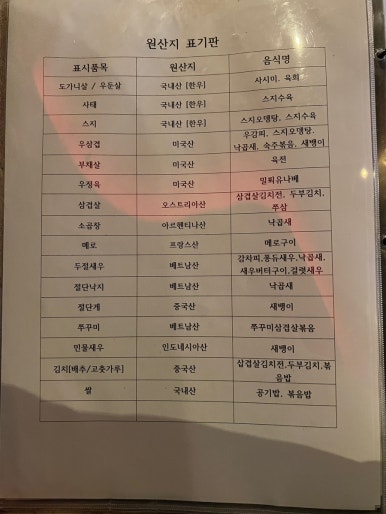 원산지 표기판
표시품목 원산지 음식명
도가니살 / 우둔살 국내산 [한우] 사시미. 육회
사태 국내산 [한우] 스지수육
스지 국내산 [한우] 스지오뎅탕, 스지수육
우삼겹 미국산 우감피, 스지오뎅탕,
낙곱새, 숙주볶음, 새뱅이
부채살 미국산 육전
우정육 미국산 밀푀유나베
삼겹살 오스트리아산 삼겹살김치전, 두부김치,
쭈삼
소곱창 아르헨티나산 낙곱새
메로 프랑스산 메로구이
두절새우 베트남산 감자피,퐁듀새우,낙곱새,
새우버터구이,걸렛새우
절단낙지 베트남산 낙곱새
절단게 중국산 새뱅이
쭈꾸미 베트남산 쭈꾸미삼겹살볶음
민물새우 인도네시아산 새뱅이
김치[배추/고춧가루] 중국산 삼겹살김치전,두부김치,볶
음밥
쌀 국내산 공기밥, 볶음밥